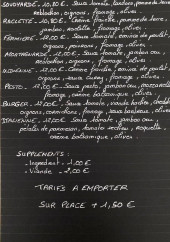 SAVOYARDE - 10,80 € Sauce tomate, lardons, pomme de terre
reblochon, oignons, fromage, olives.
RACLETTE - 10,80 € Crème fraîche, pomme de terre,
jambon, raclette, fromage, olives.
FERMIÈRE - 12.00 € Sauce tomate, émincé de poulet
oignons, poivrons, fromage, olives.
12.00 € Sauce tomate, jambon cru,
reblochon, oignons, fromage, olives.
INDIENNE - 12.00 € Crème fraîche, émincé de poulet,
oignons, sauce curry, fromage, olives.
PESTO - 12.00 € Sauce pesto, jambon cru,
fromage, crème balsamique, olives.
BURGER - 12.00 € Sauce tomate, viande hachée, cheddar
oignons, cornichons, fromage, sauce burger, olives.
ITALIENNE - 12.00 € Sauce tomate, jambon cru,
pétales de parmesan, tomates cerises, roquette,
crème balsamique, olives.
SUPPLÉMENTS :
- Ingrédient - 1.00 €
- Viande - 2.00 €
TARIFS A EMPORTER
SUR PLACE + 1,50 €